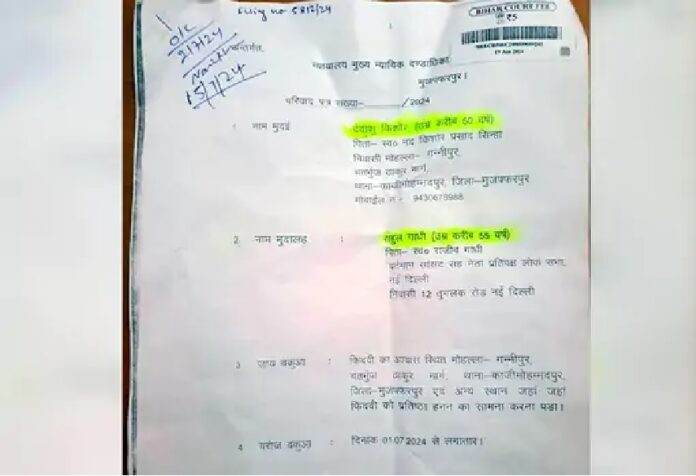 Filing no 5812/24
BIHAR COURT FEE
₹5
O/C
2/7/24
15/7/24
न्यायालय मुख्य न्यायिक दण्डाधिकारी
मुजफ्फरपुर।
परिवाद पत्र संख्या-______/2024
1 नाम मुदई
किशोर (उम्र करीब 50 वर्ष)
पिता– स्व० नंद किशोर प्रसाद सिन्हा
निवासी मोहल्ला– गन्नीपुर,
ठाकुर मार्ग,
थाना–काजीमोहम्मदपुर, जिला–मुजफ्फरपुर
मोबाईल नं०- 9430675988
2 नाम मुदालह :
राहुल गांधी (उम्र करीब 55 वर्ष)
पिता– स्व० राजीव गांधी
वर्तमान सांसद सह नेता प्रतिपक्ष लोक सभा,
नई दिल्ली
निवासी 12 तुगलक रोड नई दिल्ली
3 जाय वकुआ : फिदवी का आवास स्थित मोहल्ला– गन्नीपुर,
ठाकुर मार्ग, थाना–काजीमोहम्मदपुर,
जिला–मुजफ्फरपुर एवं अन्य स्थान जहां जहां
फिदवी को प्रतिष्ठा हनन का सामना करना पड़ा।
4 वकुआ : दिनांक 01.07.2024 से लगातार।